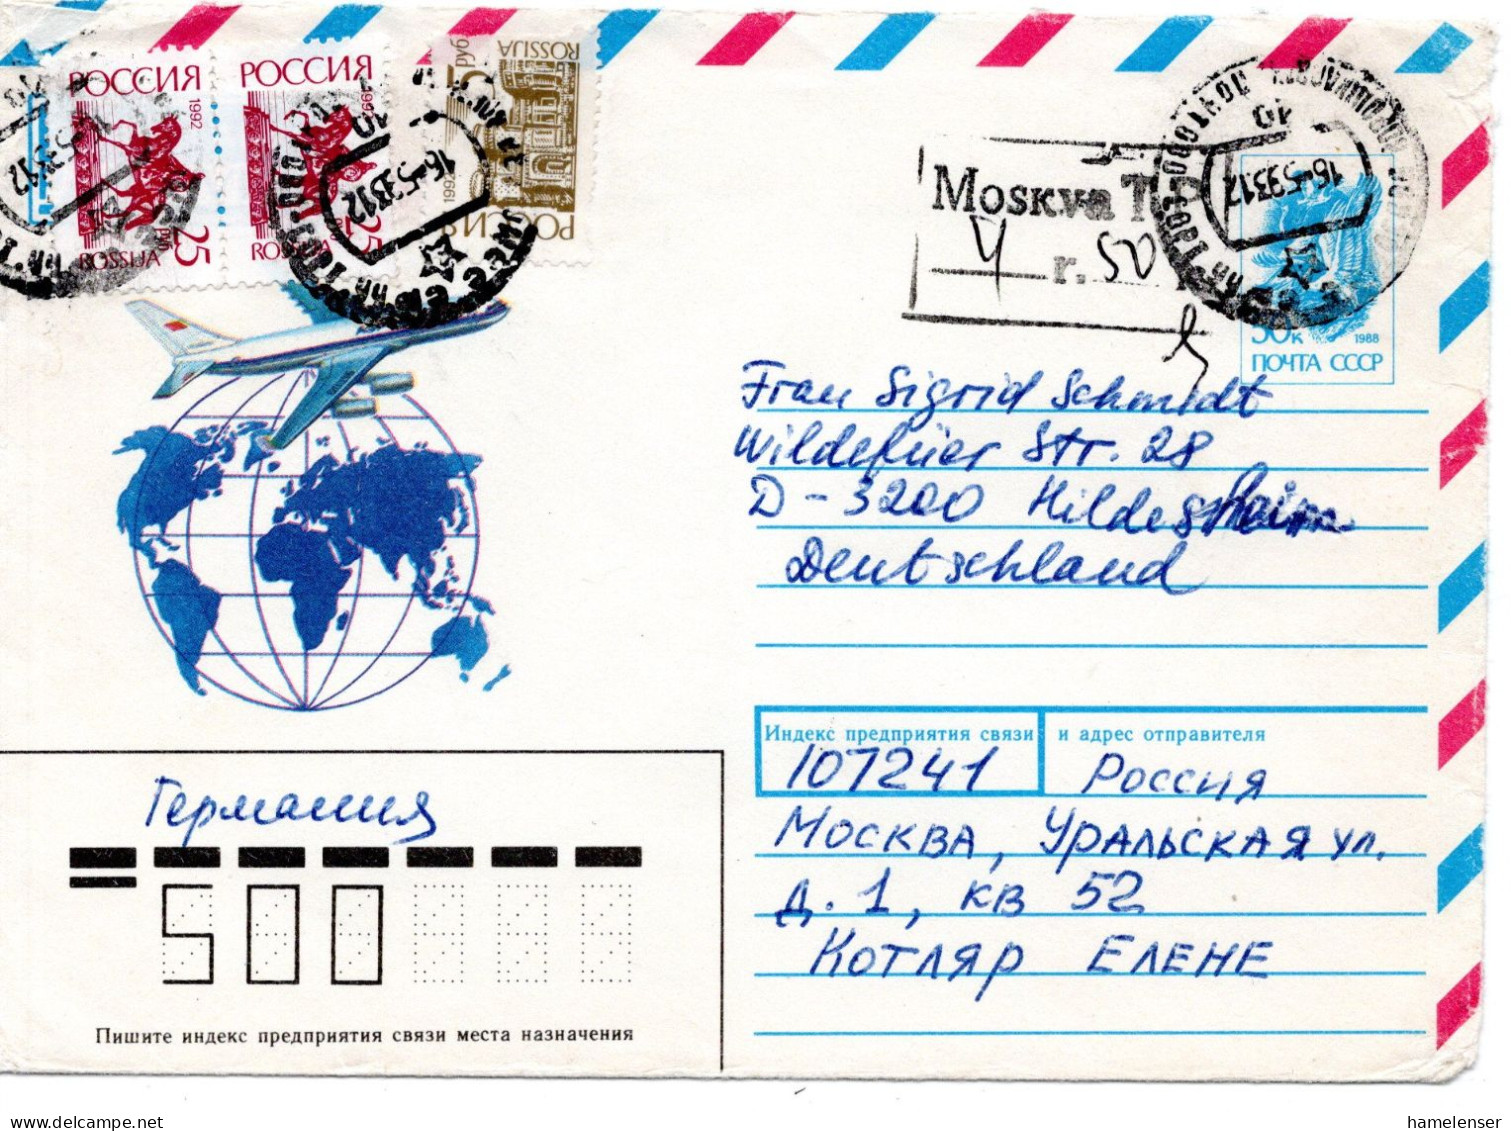 РОССИЯ
1992
25
руб
ROSSIJA
РОССИЯ
1992
25
ROSSIJA
РОССИЯ
1992
ROSSIJA
15 руб
16-5-9312
16-5-9312
10
Moskva T
4 r. 50
50к
1988
ПОЧТА СССР
Frau Sigrid Schmidt
Wildefüer Str. 28
D - 3200 Hildesheim
Deutschland
Индекс предприятия связи и адрес отправителя
107241 Россия
Москва, Уральская ул.
д. 1, кв 52
Котляр Елене
Германия
500
Пишите индекс предприятия связи места назначения
hamelenser